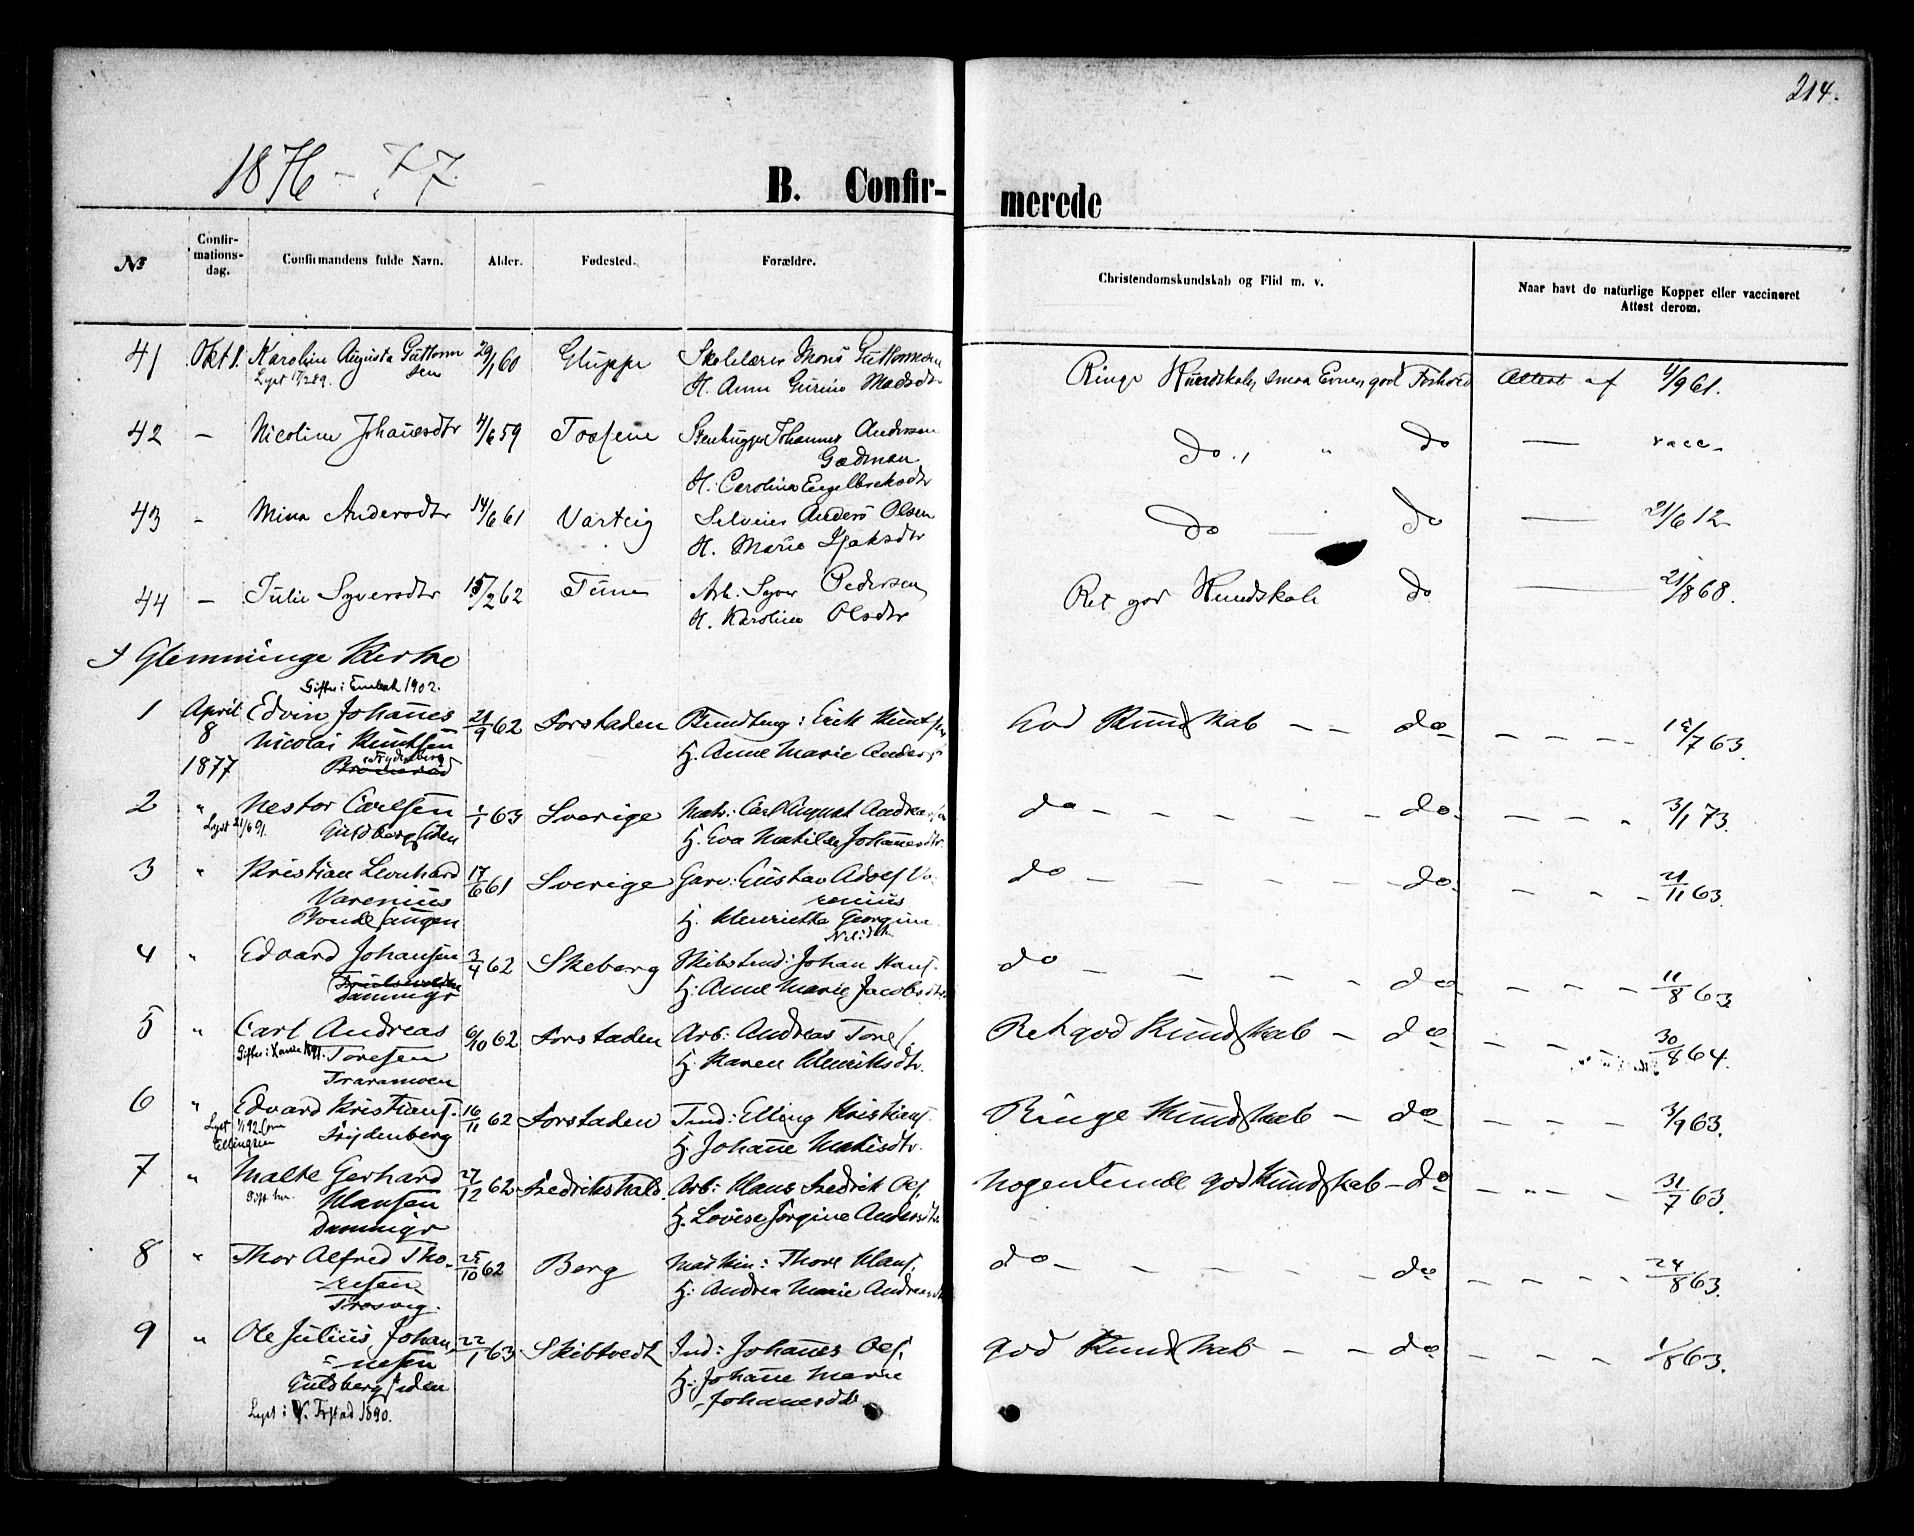 214.
1876 - 77.
B. Confir-
merede
№
Confir-
mations-
dag.
Confirmandens fulde Navn.
Alder.
Fødested.
Forældre.
Christendomskundskab og Flid m. v.
Naar havt de naturlige Kopper eller vaccineret
Attest derom.
41 Okt 8. Karoline Augusta Guttorm 29/1 60 Gluppe Skolelærer Mons Guttormsen Ringe Kundskab, smaa Evner, god Forhold Attest af 4/9 61.
Lyst 17/2 89. sen H. Anne Gurine Madsdtr
42 — Nicoline Johanesdtr 4/6 59 Tossene Stenhugger Johannes Andersen do „ do — vacc.
Gædman
H. Carolina Engelbreksdtr
43 - Mina Andersdtr 14/6 61 Varteig Selveier Anders Olsen do — do — 21/6 12
H. Marie Isaksdtr
44 — Julie Syversdtr 15/2 62 Tune Arb. Syver Pedersen Ret god Kundskab do — 21/8 68.
H. Karoline Olsdtr
I Glemminge Kirke
Gifter i Enebak 1902.
1 April Edvin Johanes 21/9 62 Forstaden Bundtmg: Erik Knuts God Kundskab - - do - - - - 15/7 63.
8 Nicolai Knutsen H. Anne Marie Anders
1877 Frydenberg
2 " Nestor Carlsen 1/1 63 Sverige Matr: Carl August Andreas do - - - - - do - - - 3/1 73.
Lyst 21/6 91. Guldbergsiden H. Eva Matilde Johanesdtr.
3 " Kristian Leonhard 17/6 61 Sverige Garv: Gustav Adolf Va- do - - - - do - - - 21/11 63.
Varenius renius
Bondesaugen H. Henriette Georgine
4 " Edvard Johansen 3/4 62 Skeberg Skibstmd: Johan Hans. do - - - - - do - - - 11/8 63
Dammyr H. Anne Marie Jacobsdtr
5 " Carl Andreas 6/10 62 Forstaden Arb: Andreas Tores. Ret god Kundskab - do - - - 30/8 64.
Toresen H. Karen Henriksdtr.
Traramoen
6 " Edvard Kristians. 16/11 62 Forstaden Tmd: Elling Kristians. Ringe Kundskab - do - - - - 3/9 63.
Lyst 1/1 92 som
Ellingsen Frydenberg H. Johane Matisdtr.
7 " Malte Gerhard 27/12 62 Fredrikshald Arb: Klaus Fredrik Ols. Nogenlunde god Kundskab - do - - - 31/7 63.
Klausen H. Lovise Jørgine Andersdtr
Dammyr
8 " Thor Alfred Tho- 25/10 62 Berg Maskin: Thore Klaus. do - - - - - do - - - - 24/8 63.
resen H. Andrea Marie Andreasdtr
Trosvig.
9 " Ole Julius Johan- 22/1 63 Skibtvedt Ind: Johanes Ols. god Kundskab - - do - - - - 1/8 63.
nesen H. Johane Marie
Guldbergsiden Johanesdtr
Lyst i V. Frstad 1890.